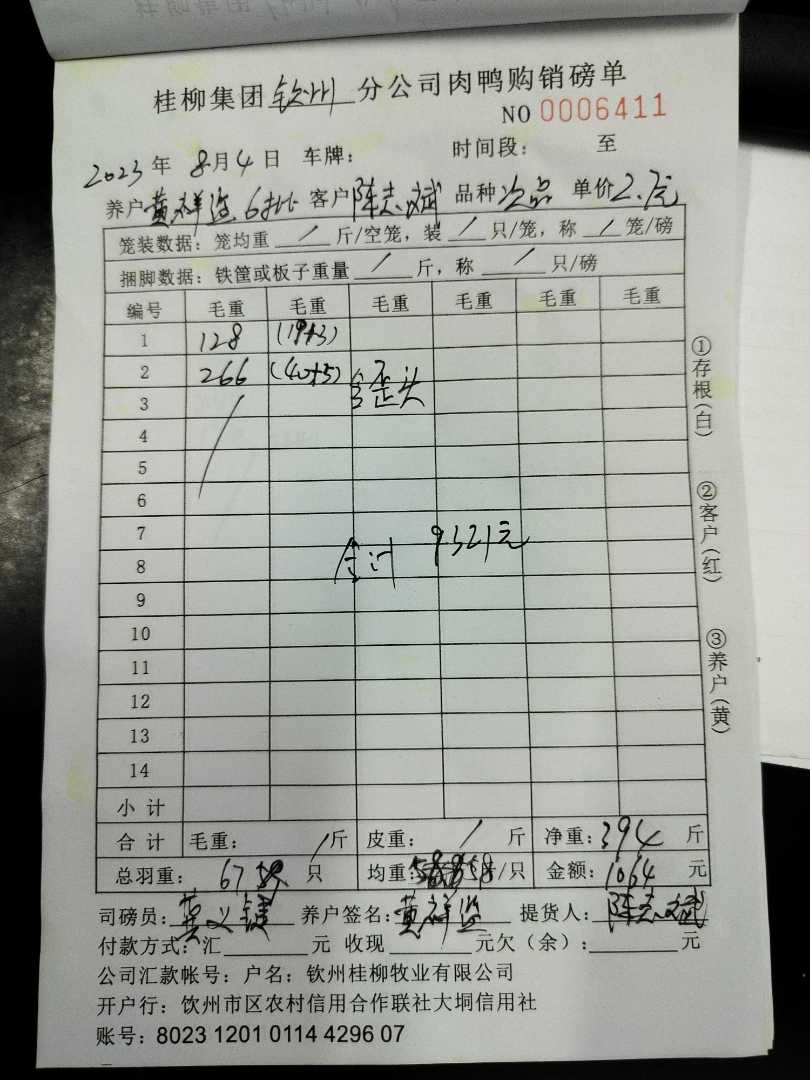 桂柳集团钦州分公司肉鸭购销磅单
NO 0006411
2023年 8月4日 车牌: 时间段: 至
养户黄祥 6批 客户陈志斌 品种次品 单价2.7元
笼装数据: 笼均重 / 斤/空笼, 装 / 只/笼, 称 / 笼/磅
捆脚数据: 铁筐或板子重量 / 斤, 称 / 只/磅
编号 毛重 毛重 毛重 毛重 毛重 毛重
1 128 (19+3)
2 266 (40+5) 含歪头
3
4
5
6
7 合计 9321元
8
9
10
11
12
13
14
小计
合计 毛重: / 斤 皮重: / 斤 净重: 394 斤
总羽重: 67 只 均重: 5.8 /只 金额: 1064 元
司磅员: 养户签名: 黄祥 提货人: 陈志斌
付款方式: 汇 元 收现 元欠(余): 元
公司汇款帐号: 户名: 钦州桂柳牧业有限公司
开户行: 钦州市区农村信用合作联社大垌信用社
账号: 8023 1201 0114 4296 07
①存根(白)
②客户(红)
③养户(黄)